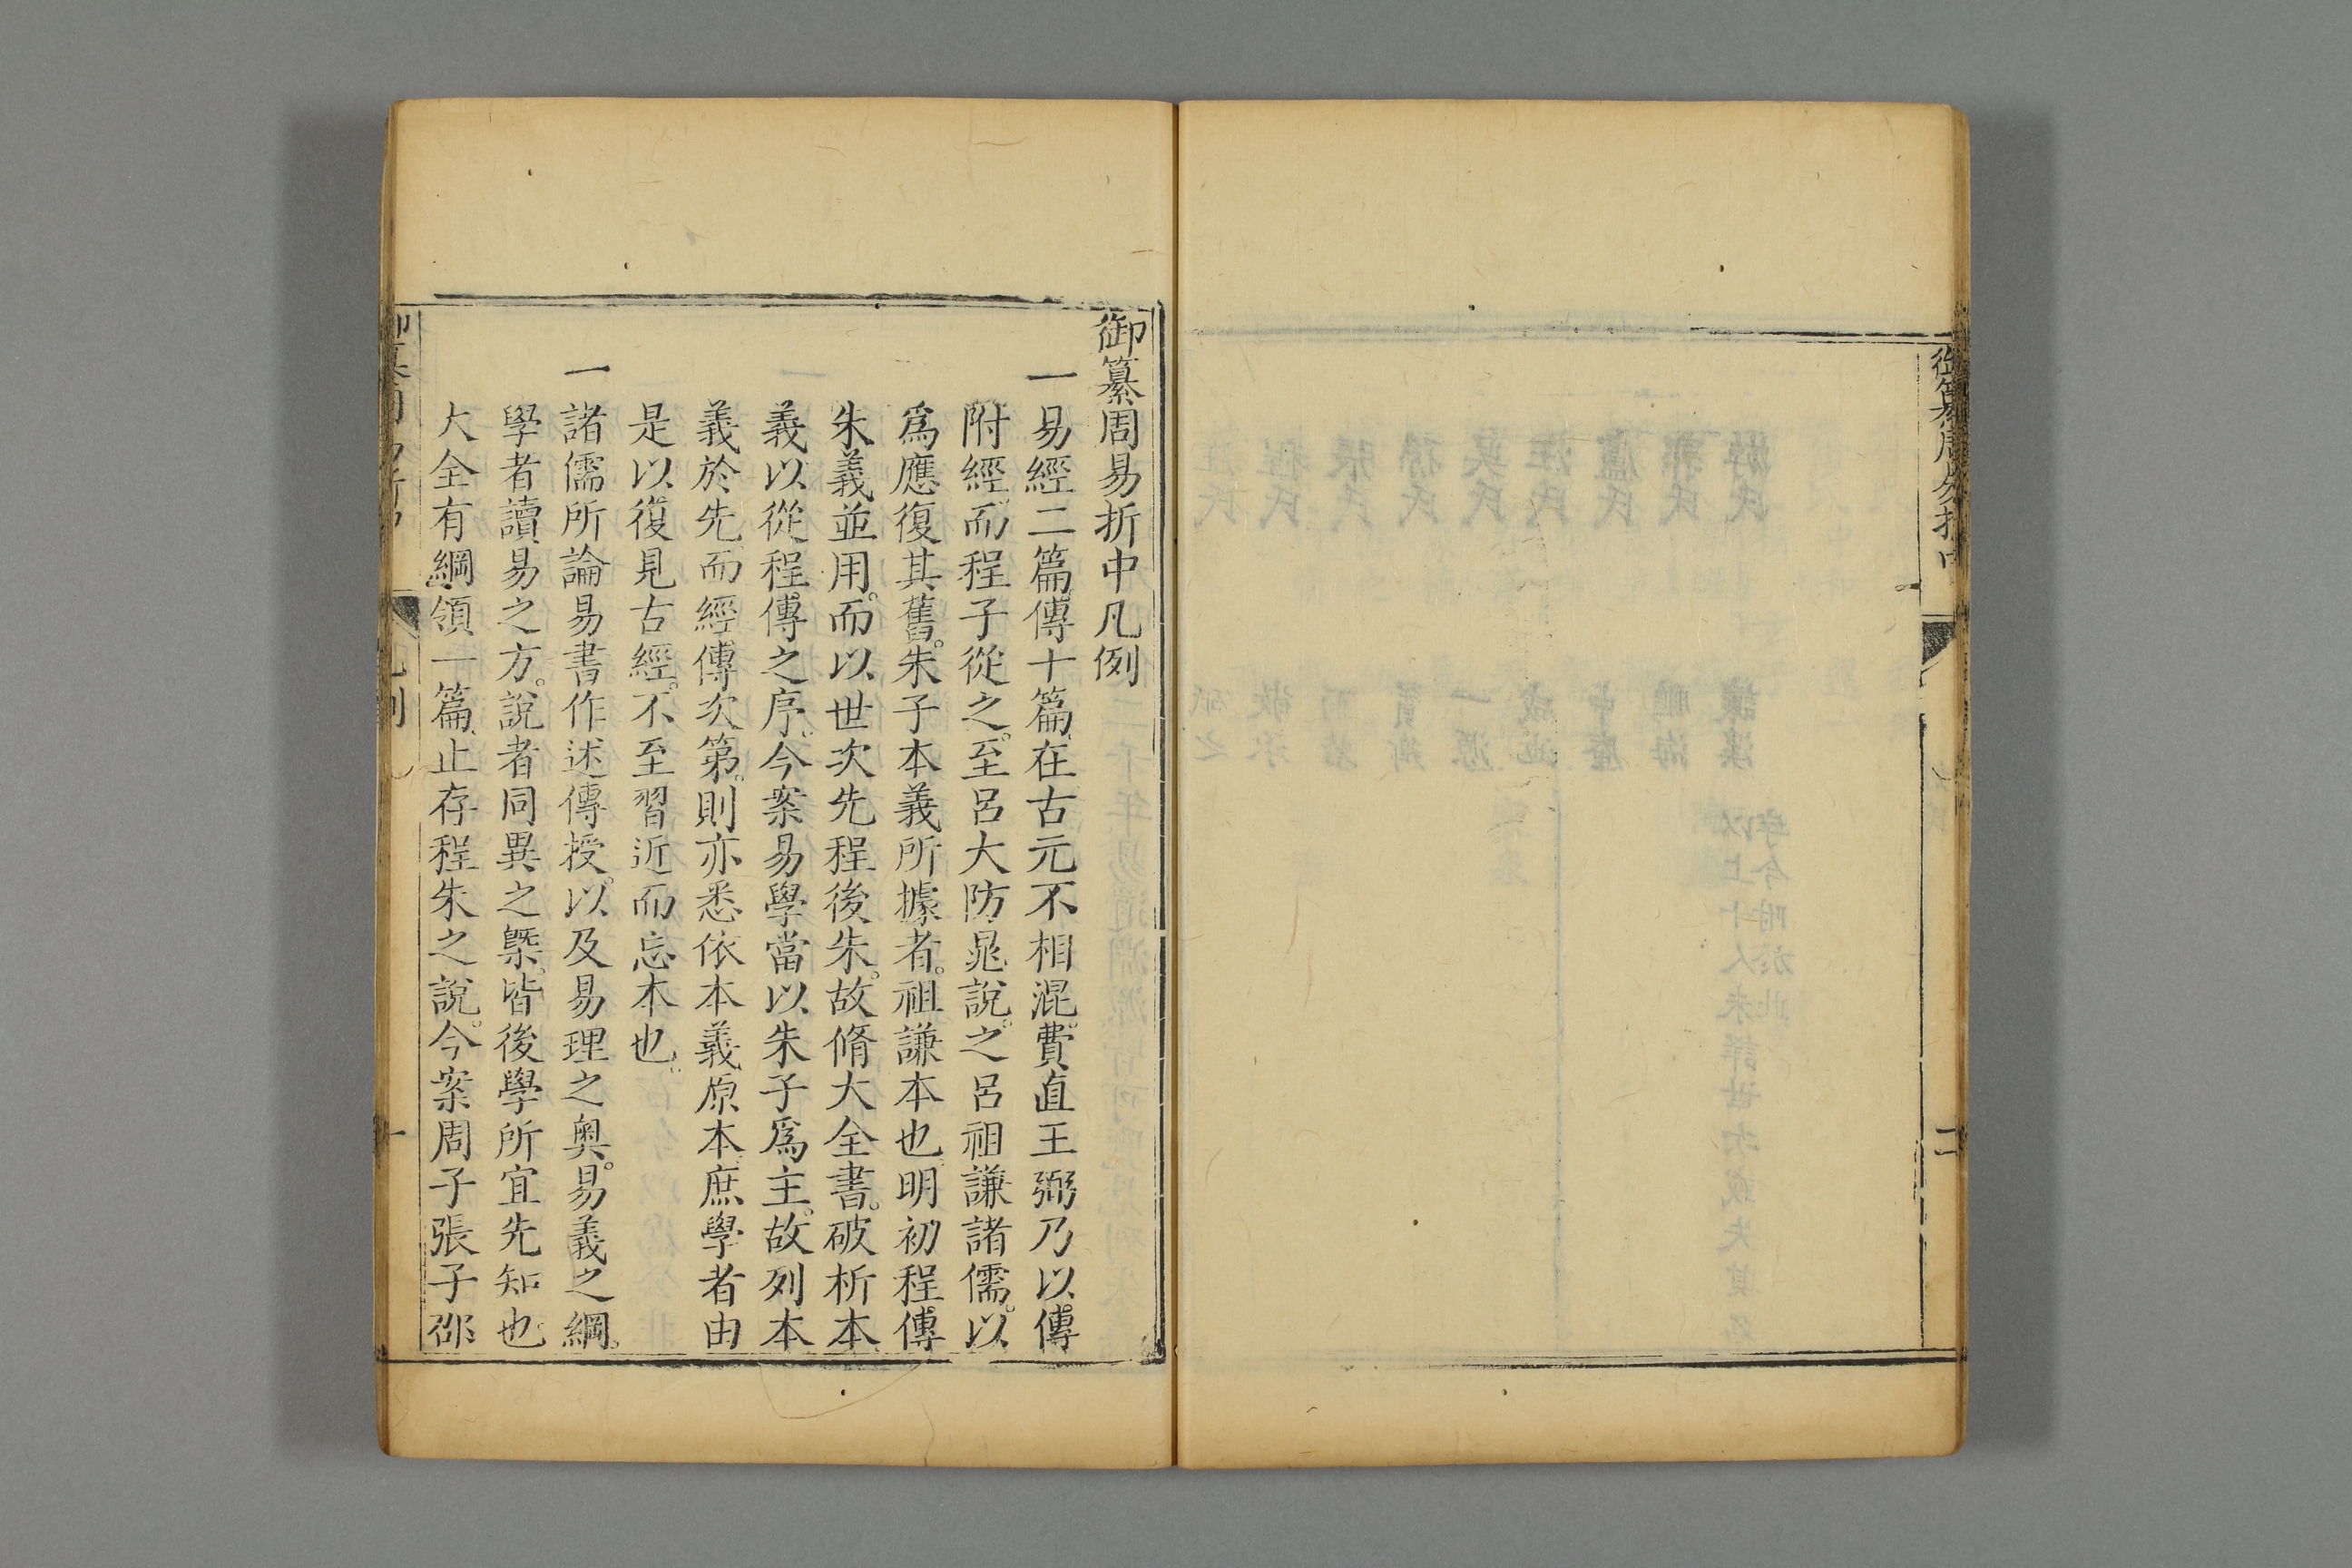 御纂周易折中
二
御纂周易折中凡例
一易經二篇傳十篇在古元不相混費直王弼乃以傳
附經而程子從之至呂大防晁說之呂祖謙諸儒以
爲應復其舊朱子本義所據者祖謙本也明初程傳
朱義並用而以世次先程後朱故脩大全書破析本
義以從程傳之序今案易學當以朱子爲主故列本
義於先而經傳次第則亦悉依本義原本庶學者由
是以復見古經不至習近而忘本也
一諸儒所論易書作述傳授以及易理之奥易義之綱
學者讀易之方說者同異之槩皆後學所宜先知也
大全有綱領一篇止存程朱之說今案周子張子邵